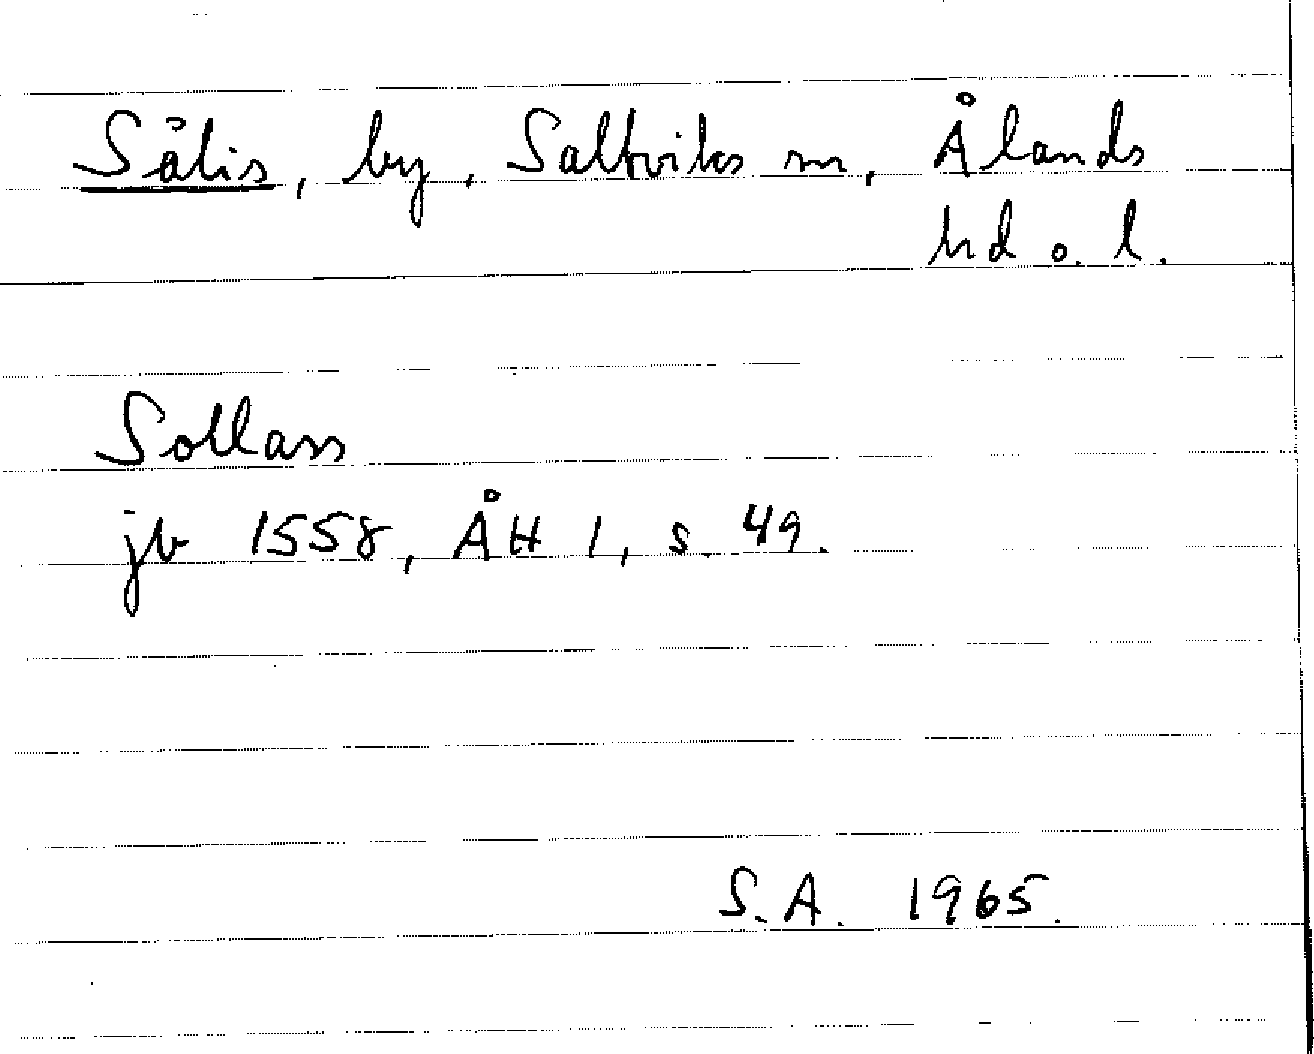 Sålis, by, Saltviks sn, Ålands
hd o. l.
Sollass
jb 1558, ÅH 1, s. 49.
S.A. 1965.